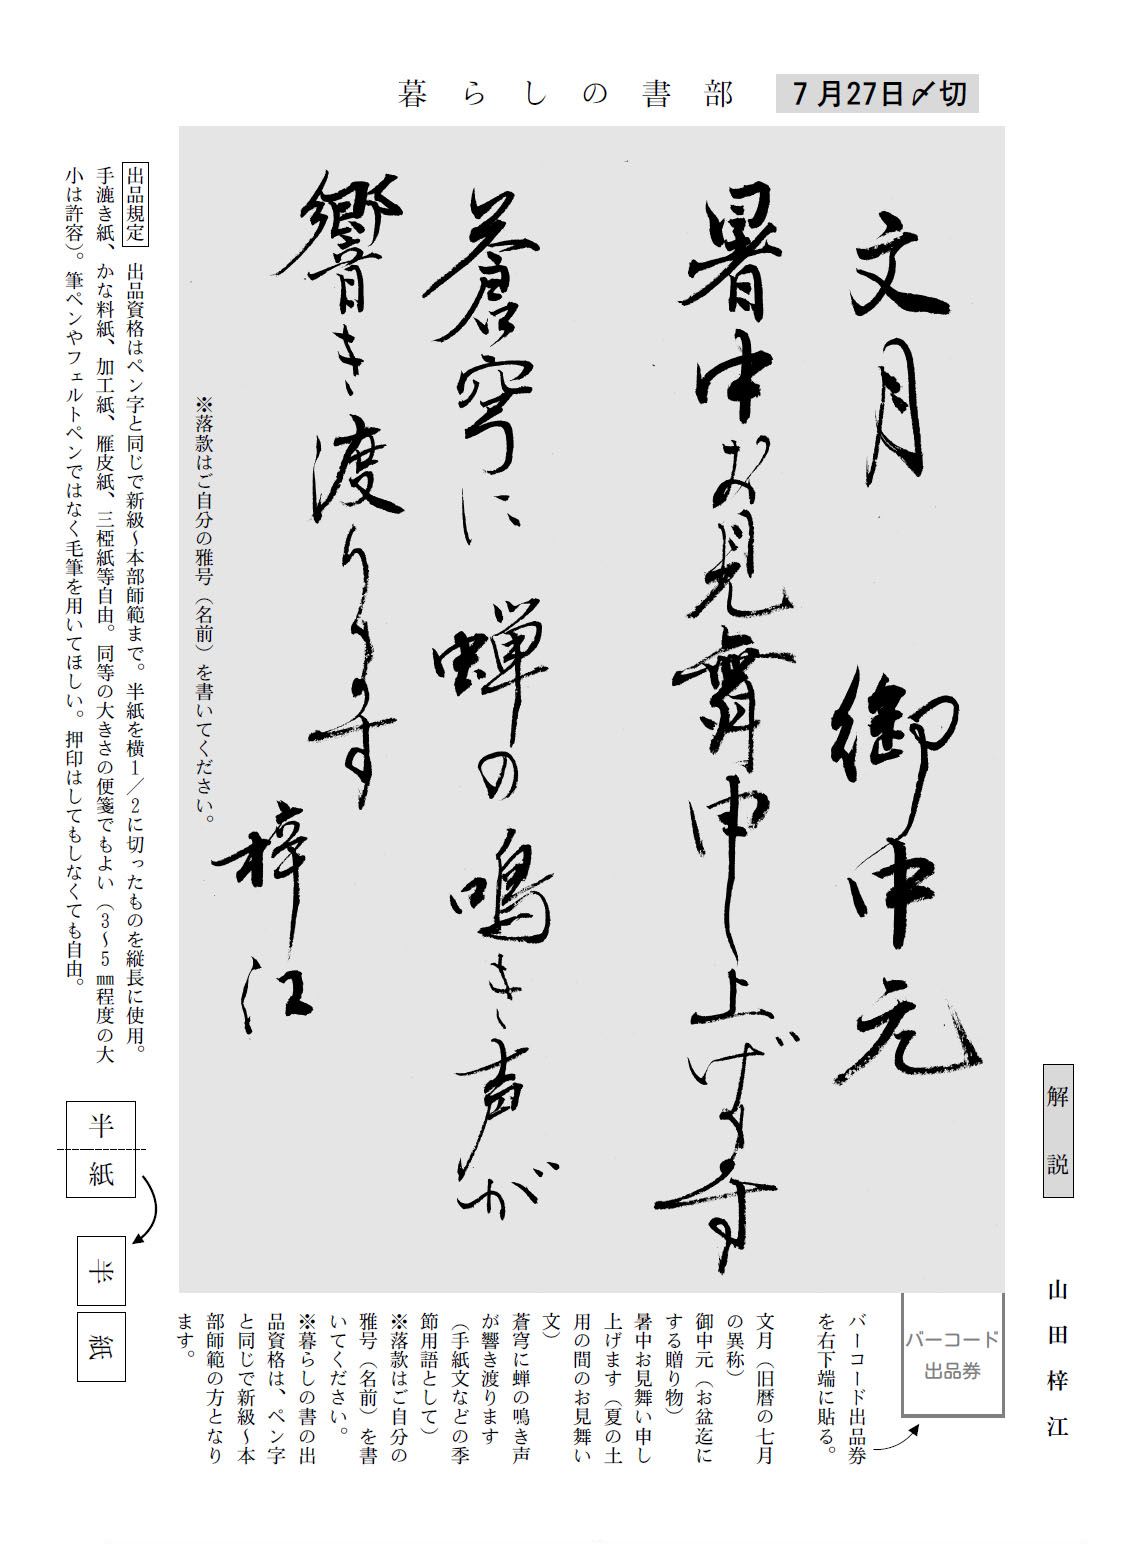 暮らしの書部
7月27日〆切
文月 御中元
暑中お見舞申し上げます
蒼穹に 蝉の鳴き声が
響き渡ります
梓江
※落款はご自分の雅号（名前）を書いてください。
出品規定 出品資格はペン字と同じで新級～本部師範まで。半紙を横1／2に切ったものを縦長に使用。
手漉き紙、かな料紙、加工紙、雁皮紙、三椏紙等自由。同等の大きさの便箋でもよい（3～5㎜程度の大
小は許容）。筆ペンやフェルトペンではなく毛筆を用いてほしい。押印はしてもしなくても自由。
半
紙
半
紙
解説
山田梓江
バーコード
出品券
バーコード出品券
を右下端に貼る。
文月（旧暦の七月
の異称）
御中元（お盆迄に
する贈り物）
暑中お見舞い申し
上げます（夏の土
用の間のお見舞い
文）
蒼穹に蝉の鳴き声
が響き渡ります
（手紙文などの季
節用語として）
※落款はご自分の
雅号（名前）を書
いてください。
※暮らしの書の出
品資格は、ペン字
と同じで新級～本
部師範の方となり
ます。